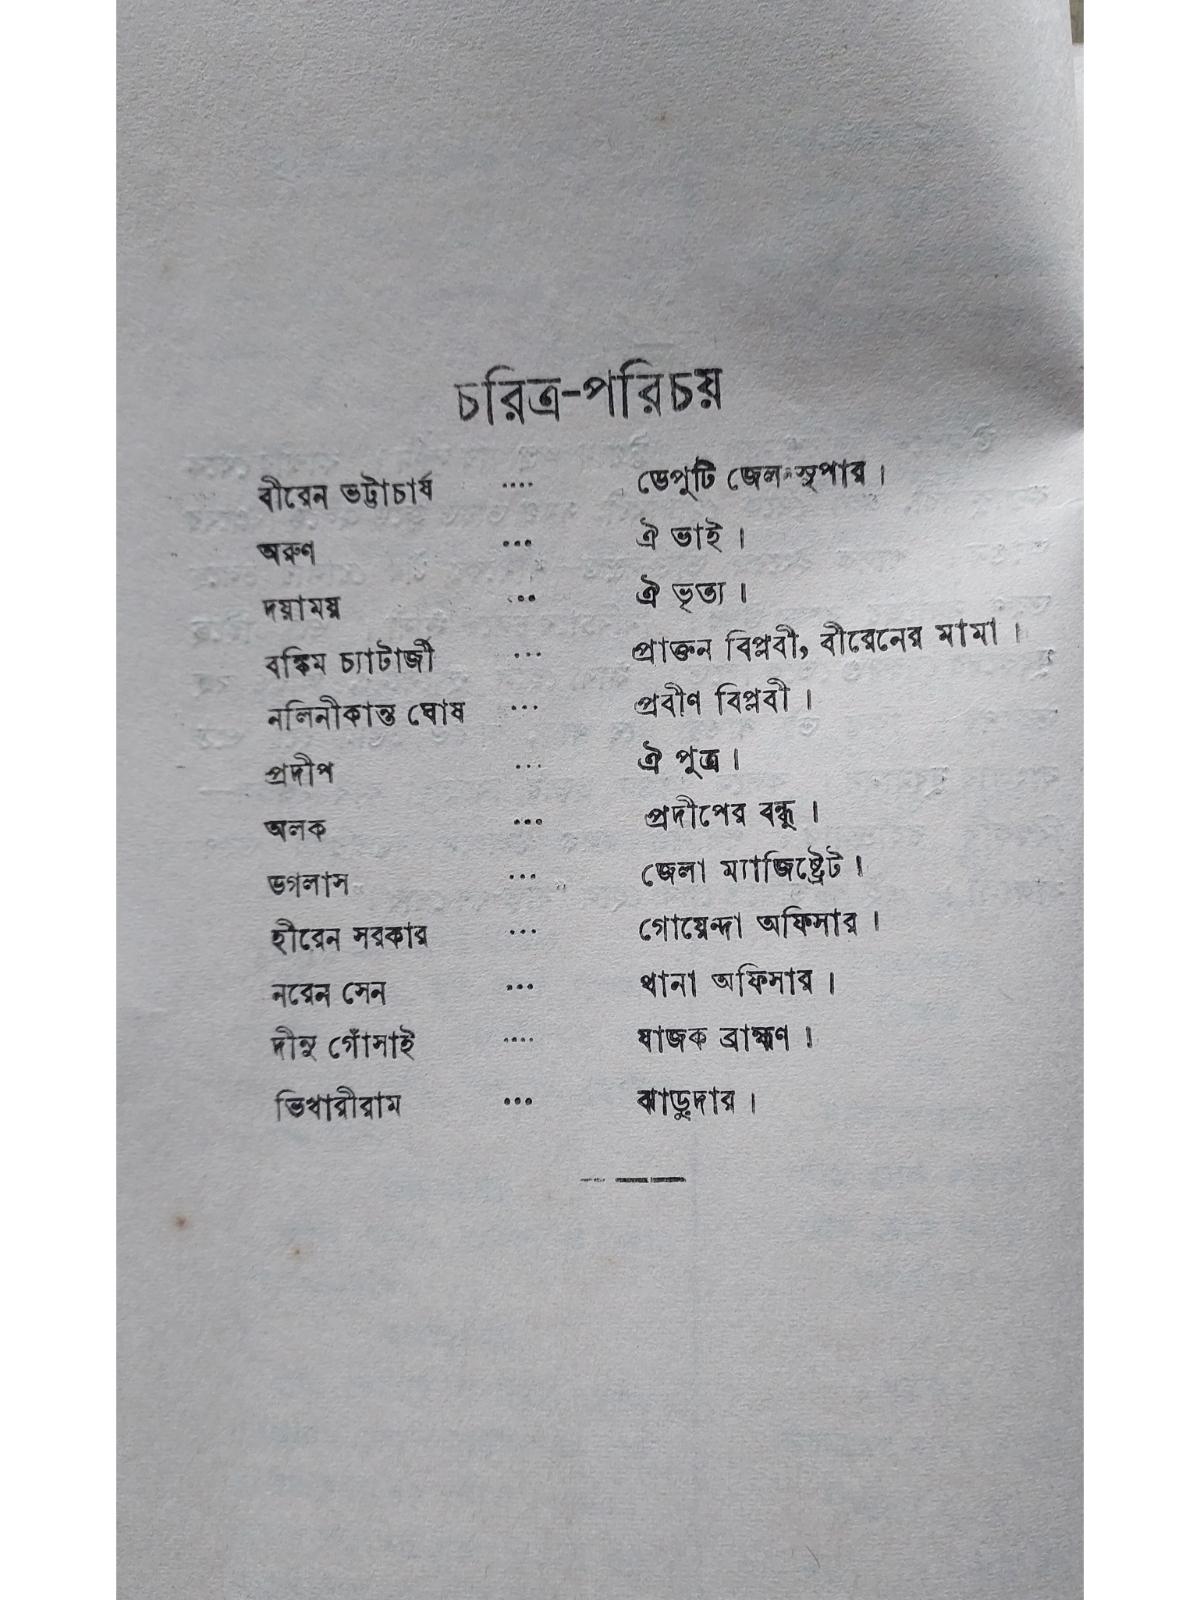 চরিত্র-পরিচয়
বীরেন ভট্টাচার্য .... ডেপুটি জেল-সুপার ।
অরুণ ... ঐ ভাই ।
দয়াময় ... ঐ ভৃত্য ।
বঙ্কিম চ্যাটার্জী ... প্রাক্তন বিপ্লবী, বীরেনের মামা ।
নলিনীকান্ত ঘোষ ... প্রবীণ বিপ্লবী ।
প্রদীপ ... ঐ পুত্র ।
অলক ... প্রদীপের বন্ধু ।
ডগলাস ... জেলা ম্যাজিষ্ট্রেট ।
হীরেন সরকার ... গোয়েন্দা অফিসার ।
নরেন সেন ... থানা অফিসার ।
দীনু গোঁসাই .... যাজক ব্রাহ্মণ ।
ভিখারীরাম ... ঝাড়ুদার ।